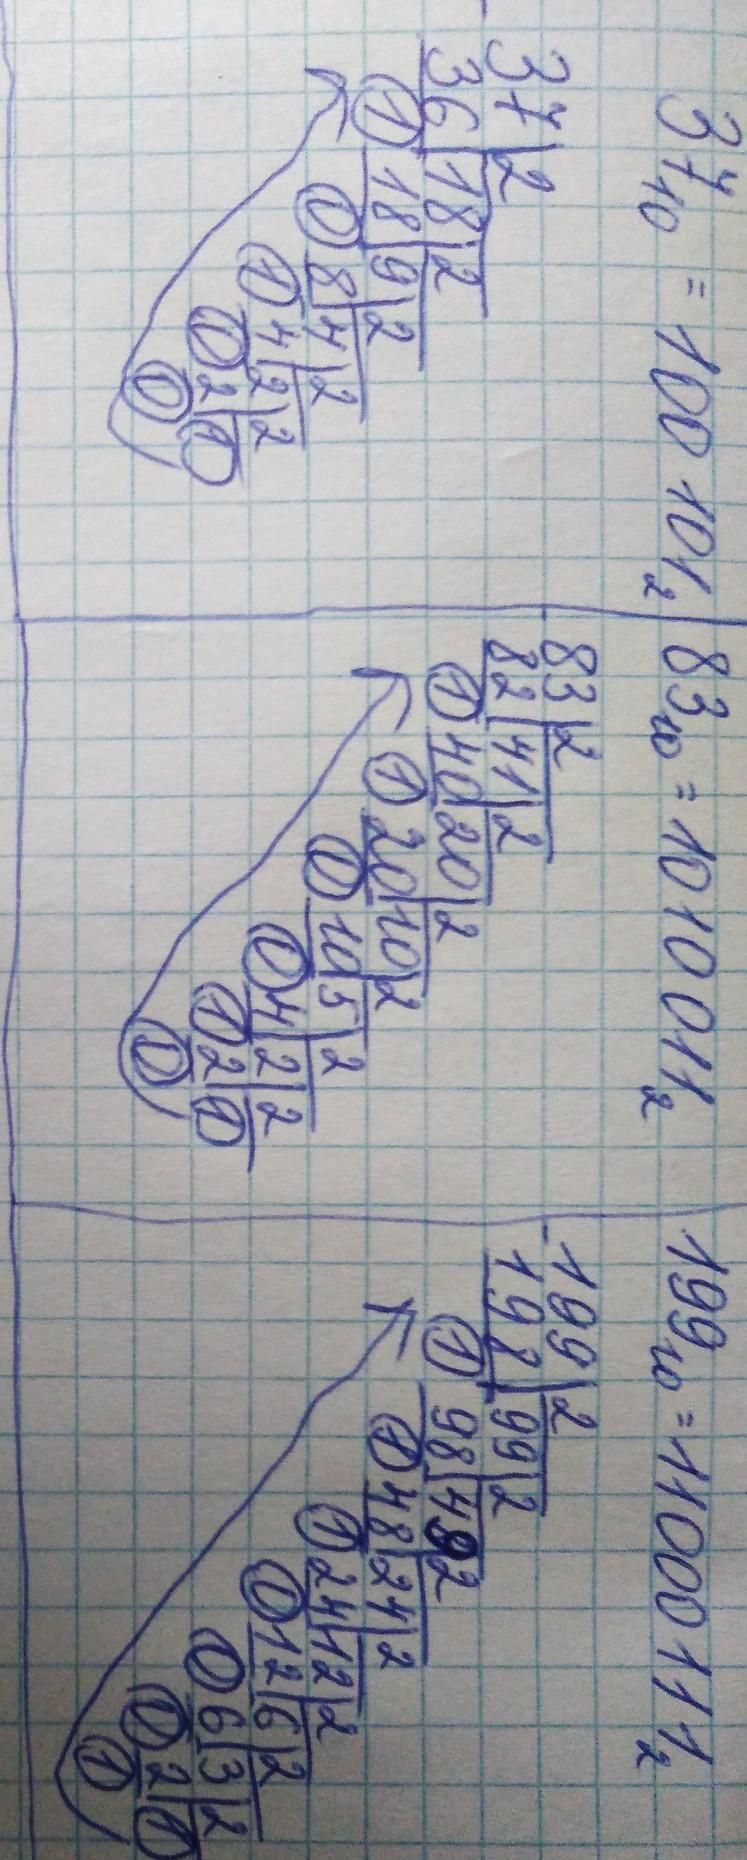 37₁₀ = 100101₂
37 | 2
36 | 18 | 2
1 | 18 | 9 | 2
0 | 8 | 4 | 2
1 | 4 | 2 | 2
0 | 2 | 1
0
83₁₀ = 1010011₂
83 | 2
82 | 41 | 2
1 | 40 | 20 | 2
1 | 20 | 10 | 2
0 | 10 | 5 | 2
0 | 4 | 2 | 2
1 | 2 | 1
0
199₁₀ = 11000111₂
-199 | 2
198 | 99 | 2
1 | 98 | 49 | 2
1 | 48 | 24 | 2
1 | 24 | 12 | 2
0 | 12 | 6 | 2
0 | 6 | 3 | 2
0 | 2 | 1
1